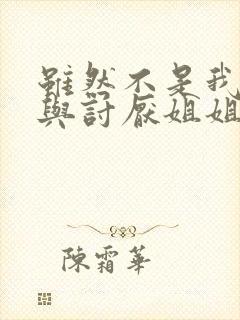 雖然不是我
與討厭姐姐
陳霜華